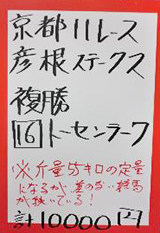 京都11レース
彦根ステークス
複勝
16 トーセンラーク
※斤量55キロの定量
になるが差のない軽馬
が抜いている!
計10000円